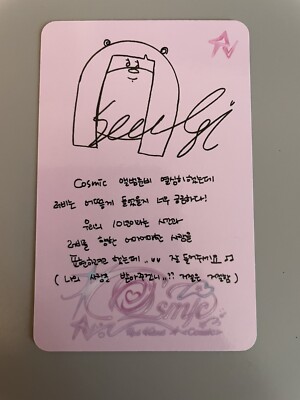 Seulgi
Cosmic 앨범준비 열심히 했는데
러비는 어떻게 들었을지 너무 궁금하다!
우리의 10년이라는 시간과
러비를 향한 어마어마한 사랑을
표현하려고 했는데 .. 잘 들어주세요 ♫
( 나의 사랑을 받아주겠니..!! 거절은 거절함 )
Cosmic